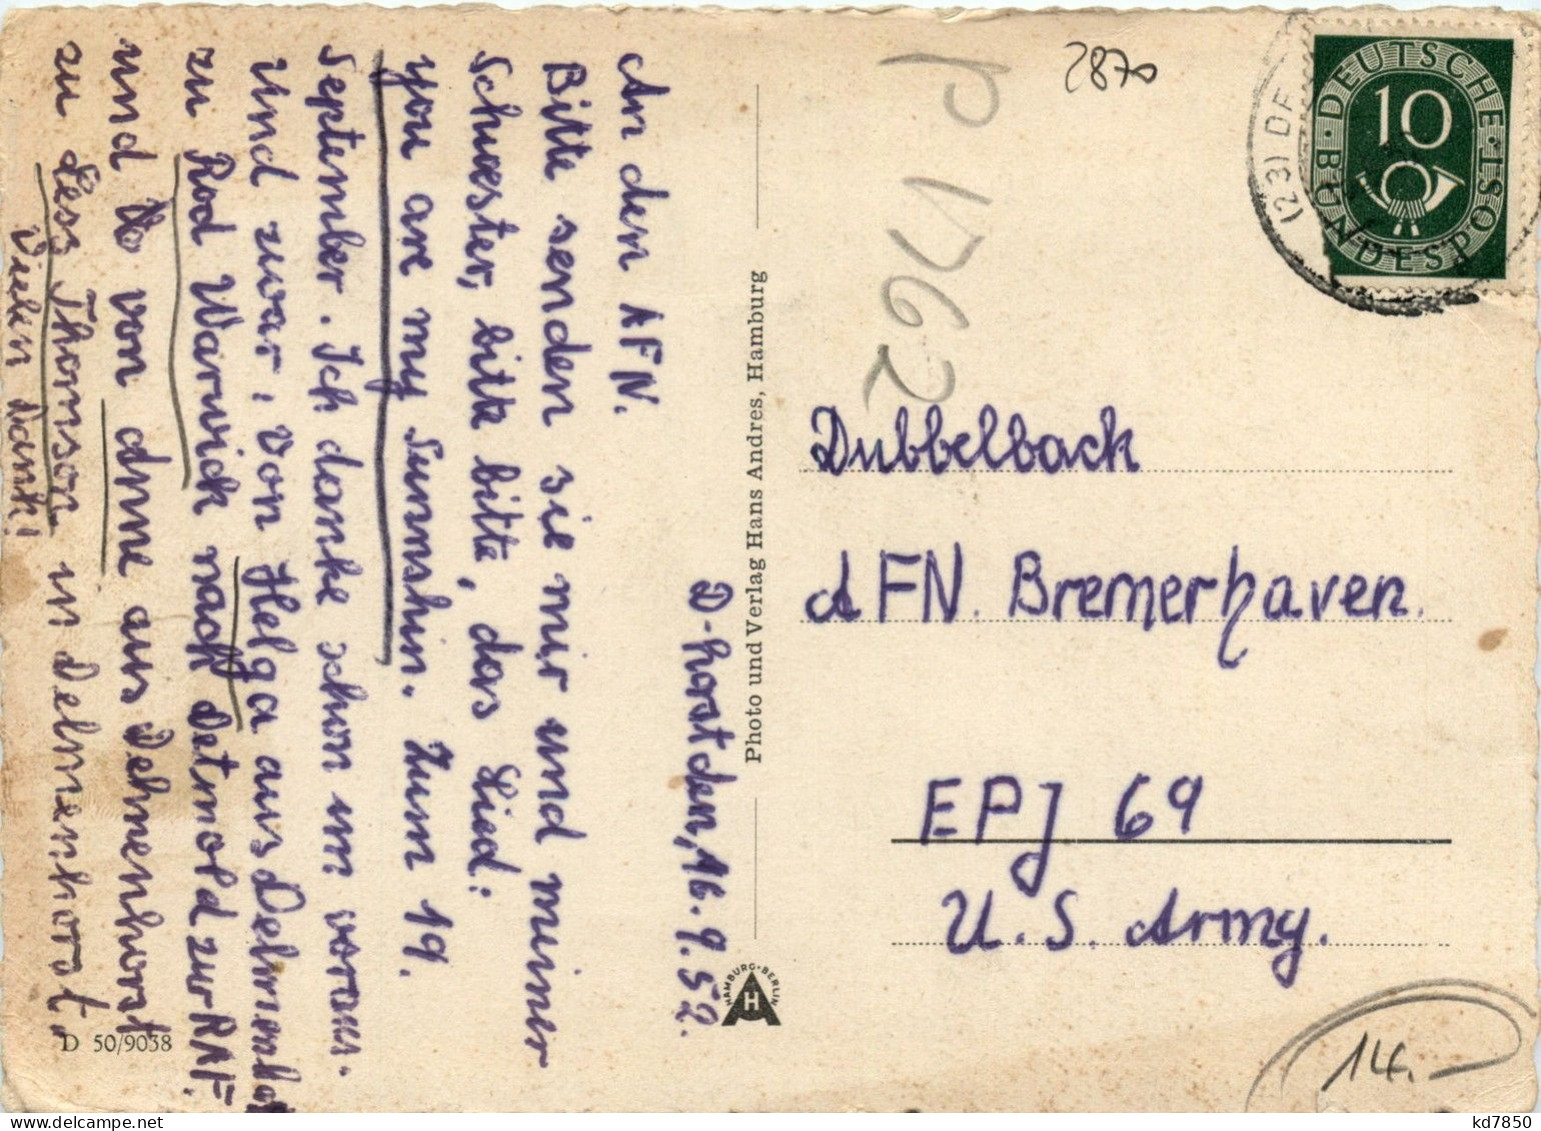 D-horst den, 16.9.52.
An den AFN.
Bitte senden sie mir und meiner
Schwester, bitte bitte, das Lied:
you are my Sunnshin. Zum 19.
September. Ich danke schon im voraus.
Und zwar: von Helga aus Delmenho
zu Rod Warwick nach Detmold zur RAF.
und von Anne aus Delmenhorst
zu Les Thomson in Delmenhorst.
Vielen Dank!
D 50/9038
Photo und Verlag Hans Andres, Hamburg
HAMBURG·BERLIN
H
A
P 1762
2870
(23) DE
DEUTSCHE BUNDESPOST
10
Dubbelback
AFN. Bremerhaven.
EPJ 69
U.S. Army.
14.-
kd7850